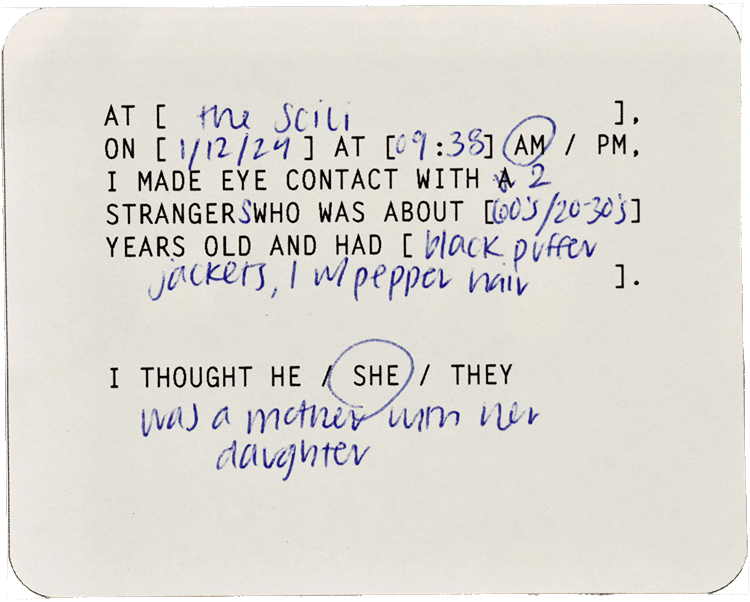 AT [ the SciLi ],
ON [ 1/12/24 ] AT [09:38] AM / PM,
I MADE EYE CONTACT WITH A 2
STRANGERS WHO WAS ABOUT [60's/20-30's]
YEARS OLD AND HAD [ black puffer
jackets, 1 w/ pepper hair ].
I THOUGHT HE / SHE / THEY
was a mother with her
daughter